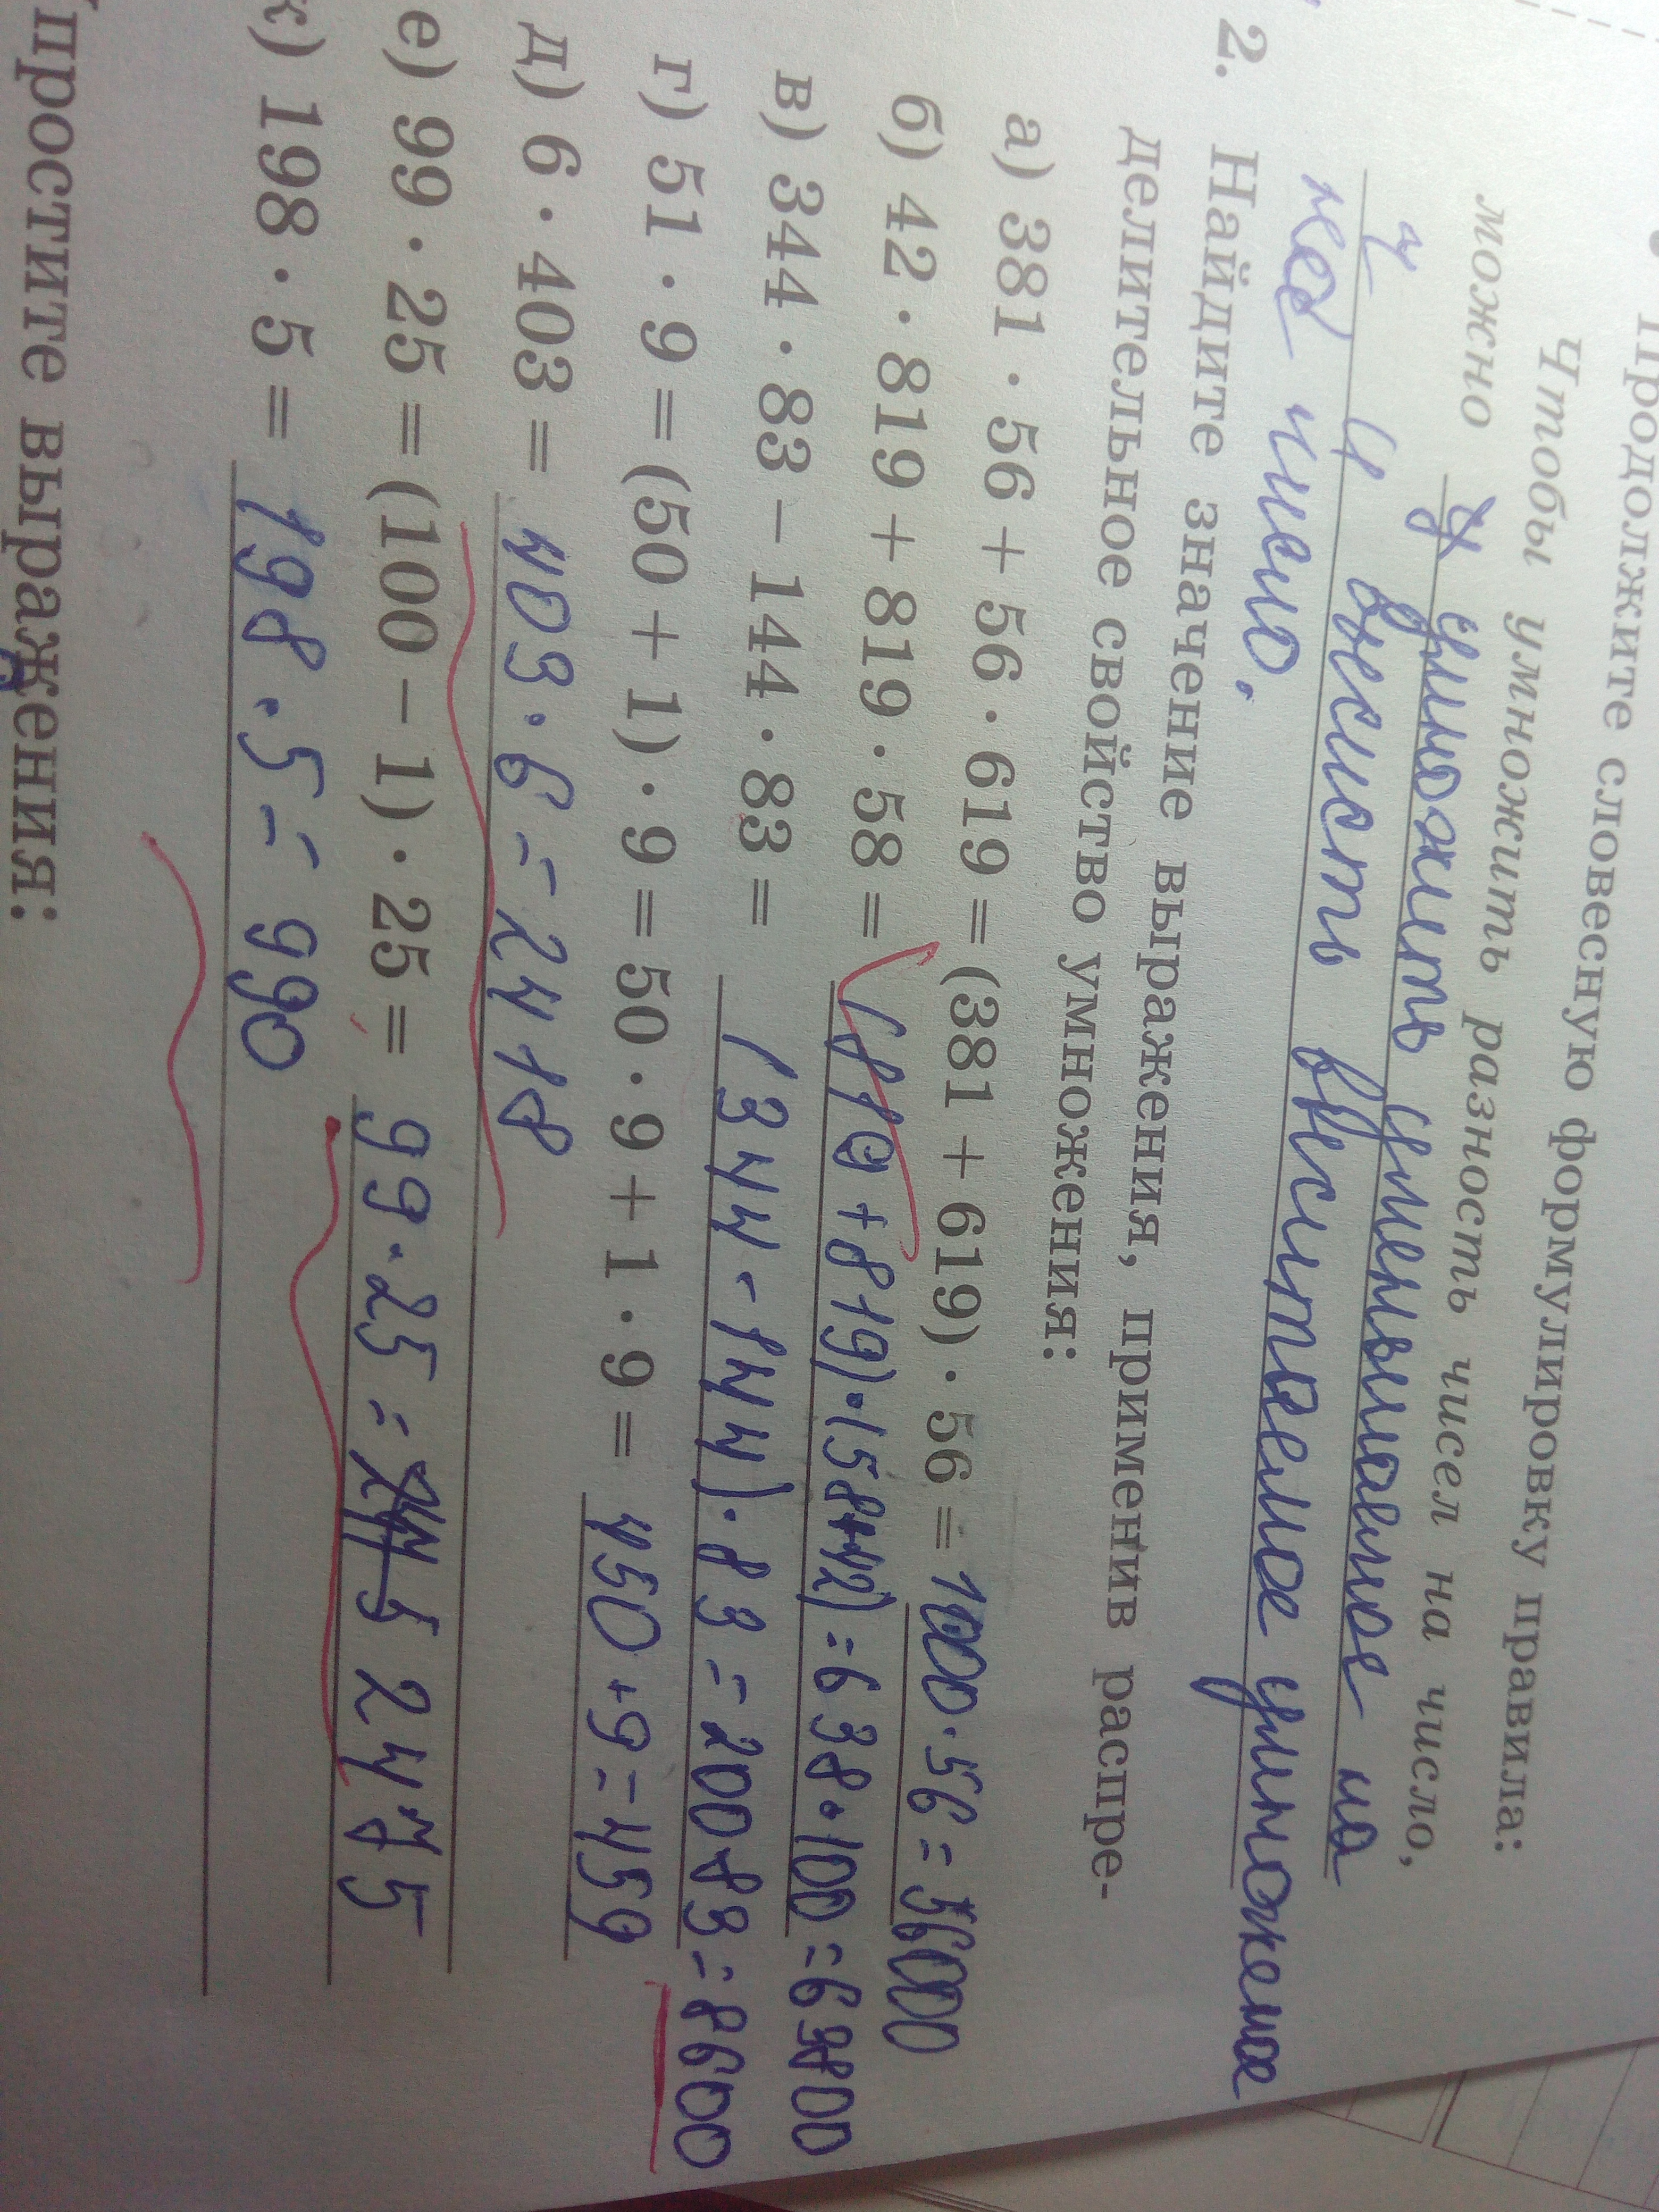 Продолжите словесную формулировку правила:
Чтобы умножить разность чисел на число,
можно умножить уменьшаемое на
и вычесть вычитаемое умножемое
число.
2. Найдите значение выражения, применив распре-
делительное свойство умножения:
а) 381 · 56 + 56 · 619 = (381 + 619) · 56 = 1000 · 56 = 56000
б) 42 · 819 + 819 · 58 = (819 + 819) · (58+42) = 638 · 100 = 63800
в) 344 · 83 − 144 · 83 = (344 - 144) · 83 = 200 83 = 8600
г) 51 · 9 = (50 + 1) · 9 = 50 · 9 + 1 · 9 = 450 + 9 = 459
д) 6 · 403 = 403 · 6 = 2418
е) 99 · 25 = (100 − 1) · 25 = 99 · 25 = 2475
ж) 198 · 5 = 198 · 5 = 990
простите выражения: